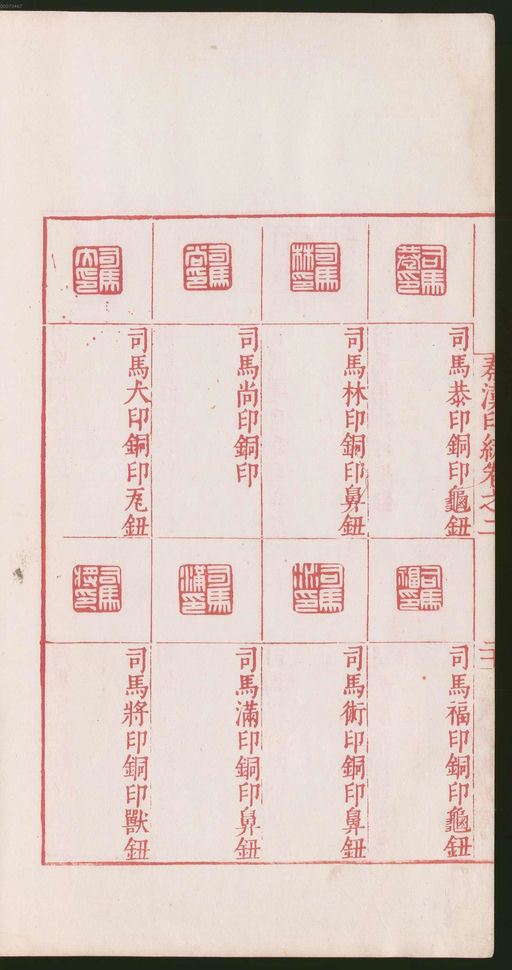 00073467
秦漢印統卷之二
司馬恭印銅印龜鈕
司馬林印銅印鼻鈕
司馬尚印銅印
司馬犬印銅印瓦鈕
司馬福印銅印龜鈕
司馬術印銅印鼻鈕
司馬滿印銅印鼻鈕
司馬將印銅印獸鈕